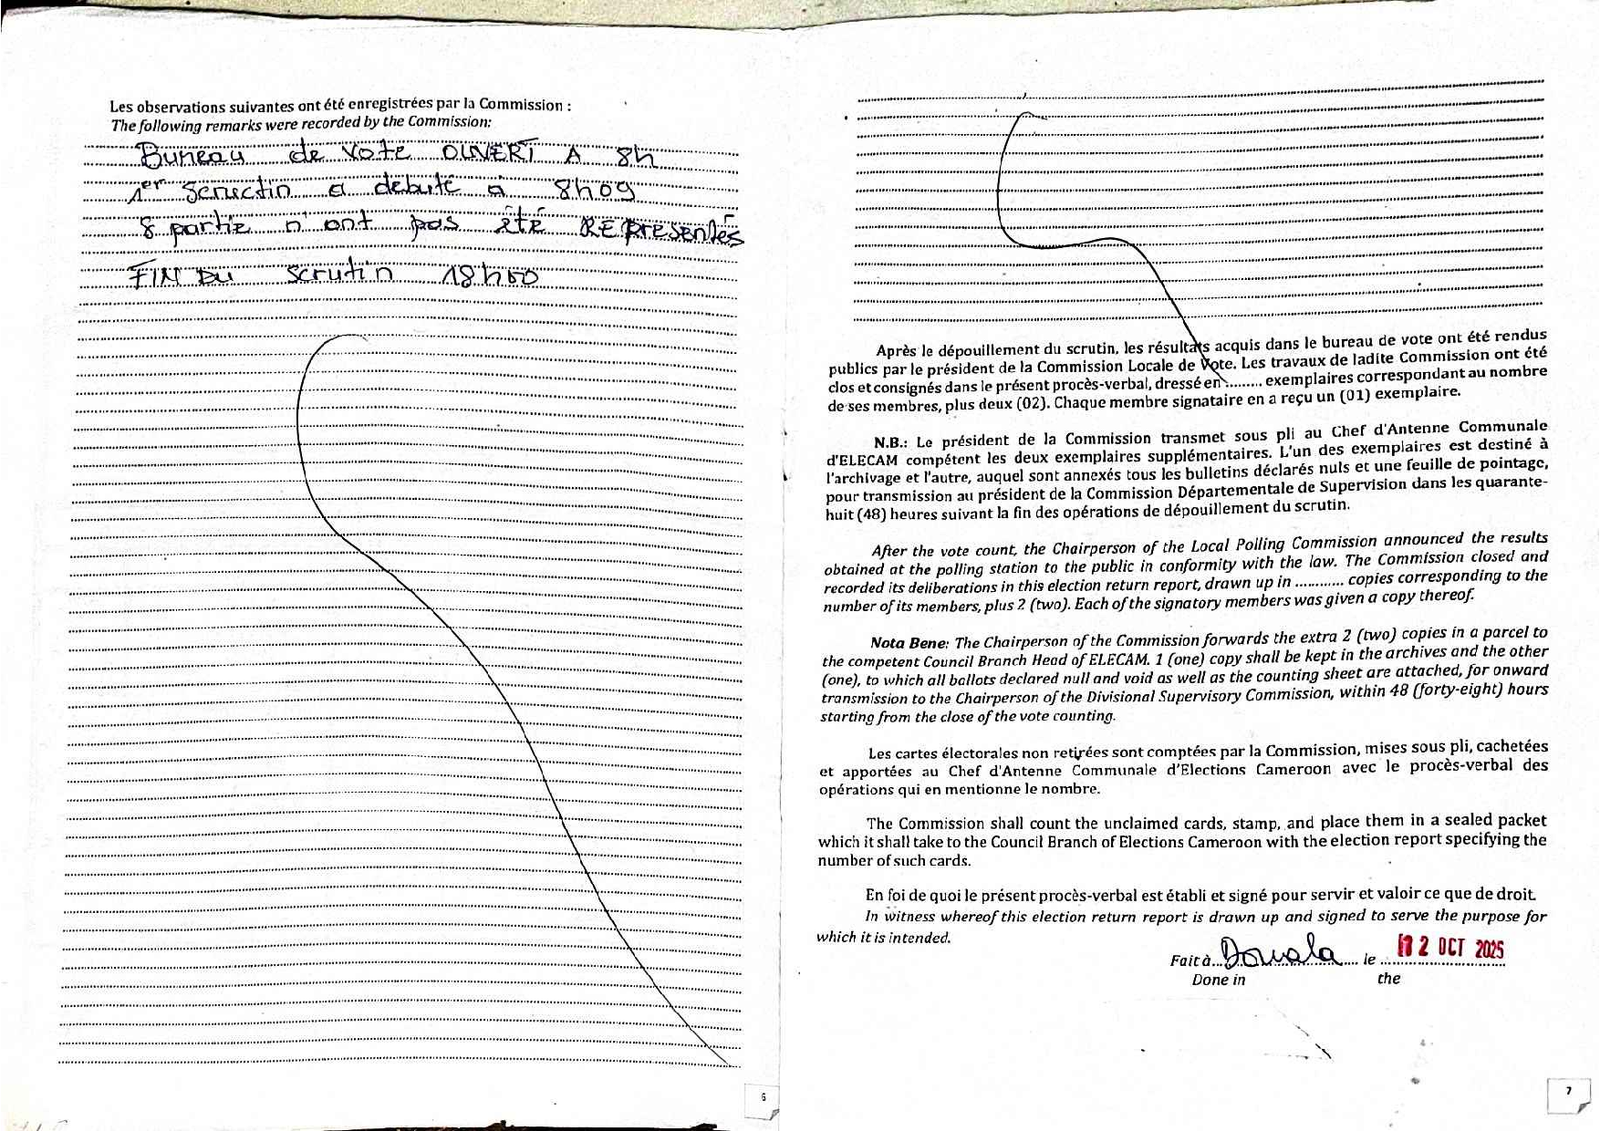 Les observations suivantes ont été enregistrées par la Commission :
The following remarks were recorded by the Commission:
Bureau de vote OUVERT A 8h
1er Scructin a débuté à 8h09
8 partie n'ont pas été REPresentés
FIN DU scrutin 18h00
6
Après le dépouillement du scrutin, les résultats acquis dans le bureau de vote ont été rendus
publics par le président de la Commission Locale de Vote. Les travaux de ladite Commission ont été
clos et consignés dans le présent procès-verbal, dressé en ......... exemplaires correspondant au nombre
de ses membres, plus deux (02). Chaque membre signataire en a reçu un (01) exemplaire.
N.B.: Le président de la Commission transmet sous pli au Chef d'Antenne Communale
d'ELECAM compétent les deux exemplaires supplémentaires. L'un des exemplaires est destiné à
l'archivage et l'autre, auquel sont annexés tous les bulletins déclarés nuls et une feuille de pointage,
pour transmission au président de la Commission Départementale de Supervision dans les quarante-
huit (48) heures suivant la fin des opérations de dépouillement du scrutin.
After the vote count, the Chairperson of the Local Polling Commission announced the results
obtained at the polling station to the public in conformity with the law. The Commission closed and
recorded its deliberations in this election return report, drawn up in ............ copies corresponding to the
number of its members, plus 2 (two). Each of the signatory members was given a copy thereof.
Nota Bene: The Chairperson of the Commission forwards the extra 2 (two) copies in a parcel to
the competent Council Branch Head of ELECAM. 1 (one) copy shall be kept in the archives and the other
(one), to which all ballots declared null and void as well as the counting sheet are attached, for onward
transmission to the Chairperson of the Divisional Supervisory Commission, within 48 (forty-eight) hours
starting from the close of the vote counting.
Les cartes électorales non retirées sont comptées par la Commission, mises sous pli, cachetées
et apportées au Chef d'Antenne Communale d'Elections Cameroon avec le procès-verbal des
opérations qui en mentionne le nombre.
The Commission shall count the unclaimed cards, stamp, and place them in a sealed packet
which it shall take to the Council Branch of Elections Cameroon with the election report specifying the
number of such cards.
En foi de quoi le présent procès-verbal est établi et signé pour servir et valoir ce que de droit.
In witness whereof this election return report is drawn up and signed to serve the purpose for
which it is intended.
Fait à Douala le 12 OCT 2025
Done in the
7